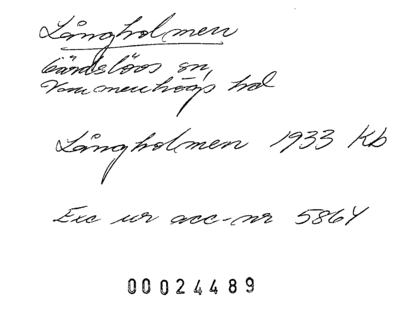 Långholmen
Gärdslövs sn,
Vemmenhögs hd
Långholmen 1933 Kb
Exc ur acc-nr 5864
00024489